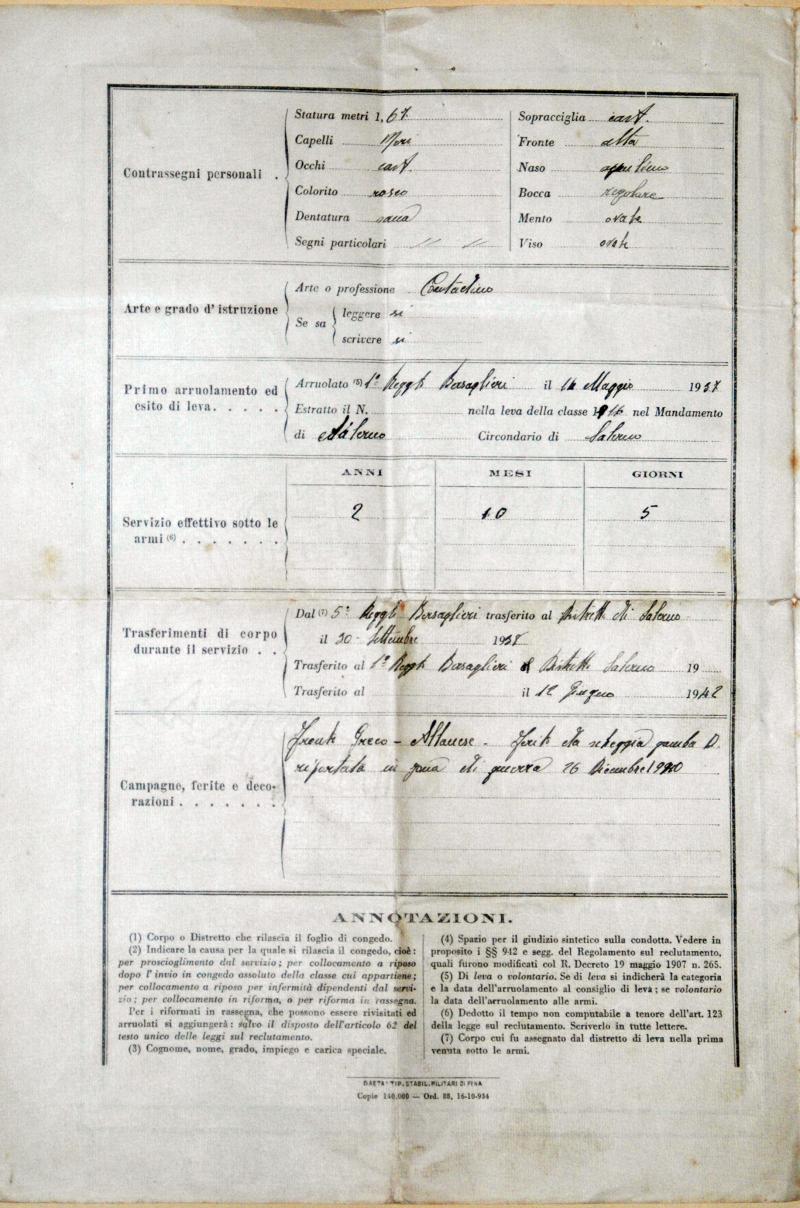 Contrassegni personali .
Statura metri 1, 67
Capelli Neri
Occhi cast.
Colorito roseo
Dentatura sana
Segni particolari // //
Sopracciglia cast.
Fronte alta
Naso aquilino
Bocca regolare
Mento ovale
Viso ovale
Arte e grado d' istruzione
Arte o professione Contadino
Se sa
leggere si
scrivere si
Primo arruolamento ed
esito di leva. . . . .
Arruolato (5) 1° Reggto Bersaglieri il Maggio 1937
Estratto il N. nella leva della classe nel Mandamento
di Salerno Circondario di Salerno
Servizio effettivo sotto le
armi (6) . . . . . . .
ANNI MESI GIORNI
2 10 5
Trasferimenti di corpo
durante il servizio . .
Dal (7) 5° Reggto Bersaglieri trasferito al Distretto di Salerno
il Settembre
Trasferito al 1° Reggto Bersaglieri Distretto Salerno 19
Trasferito al il 12 Giugno 1942
Campagne, ferite e deco-
razioni . . . . . . .
Fronte Greco - Albanese - Ferito da scheggia gamba D.
riportata in zona di guerra Dicembre 1940
ANNOTAZIONI.
(1) Corpo o Distretto che rilascia il foglio di congedo.
(2) Indicare la causa per la quale si rilascia il congedo, cioè :
per proscioglimento dal servizio ; per collocamento a riposo
dopo l' invio in congedo assoluto della classe cui appartiene ;
per collocamento a riposo per infermità dipendenti dal servi-
zio ; per collocamento in riforma, o per riforma in rassegna.
Per i riformati in rassegna, che possono essere rivisitati ed
arruolati si aggiungerà : salvo il disposto dell'articolo 62 del
testo unico delle leggi sul reclutamento.
(3) Cognome, nome, grado, impiego e carica speciale.
(4) Spazio per il giudizio sintetico sulla condotta. Vedere in
proposito i §§ 942 e segg. del Regolamento sul reclutamento,
quali furono modificati col R. Decreto 19 maggio 1907 n. 265.
(5) Di leva o volontario. Se di leva si indicherà la categoria
e la data dell'arruolamento al consiglio di leva ; se volontario
la data dell'arruolamento alle armi.
(6) Dedotto il tempo non computabile a tenore dell'art. 123
della legge sul reclutamento. Scriverlo in tutte lettere.
(7) Corpo cui fu assegnato dal distretto di leva nella prima
venuta sotto le armi.
GAETA - TIP. STABIL. MILITARI DI PENA
Copie 140.000 — Ord. 88, 16-10-934